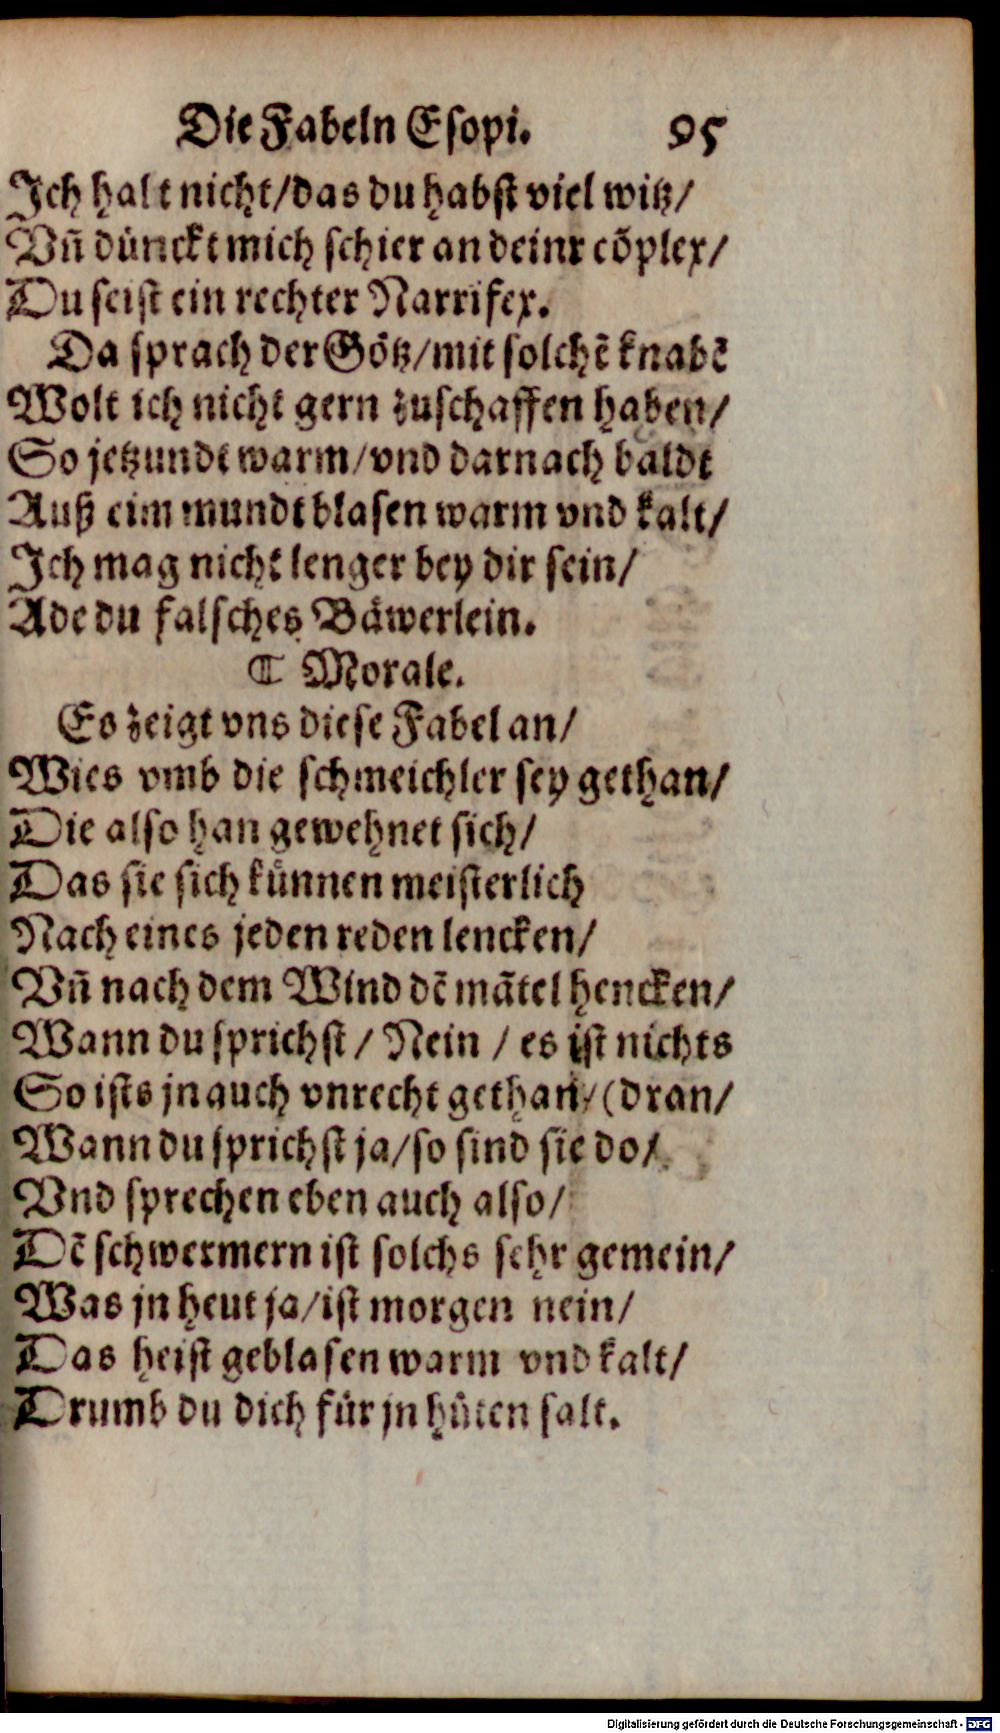 Die Fabeln Esopi. 95
Ich halt nicht/das du habst viel witz/
Vñ dünckt mich schier an deinr cõplex/
Du seist ein rechter Narrifex.
Da sprach der Götz/mit solchẽ knabẽ
Wolt ich nicht gern zuschaffen haben/
So jetzundt warm/vnd darnach baldt
Auß eim mundt blasen warm vnd kalt/
Ich mag nicht lenger bey dir sein/
Ade du falsches Bäwerlein.
☾ Morale.
Es zeigt vns diese Fabel an/
Wies vmb die schmeichler sey gethan/
Die also han gewehnet sich/
Das sie sich künnen meisterlich
Nach eines jeden reden lencken/
Vñ nach dem Wind dẽ mãtel hencken/
Wann du sprichst / Nein / es ist nichts
So ists jn auch vnrecht gethan/(dran/
Wann du sprichst ja/so sind sie do/
Vnd sprechen eben auch also/
Dẽ schwermern ist solchs sehr gemein/
Was jn heut ja/ist morgen nein/
Das heist geblasen warm vnd kalt/
Drumb du dich für jn hüten salt.
Digitalisierung gefördert durch die Deutsche Forschungsgemeinschaft - DFG